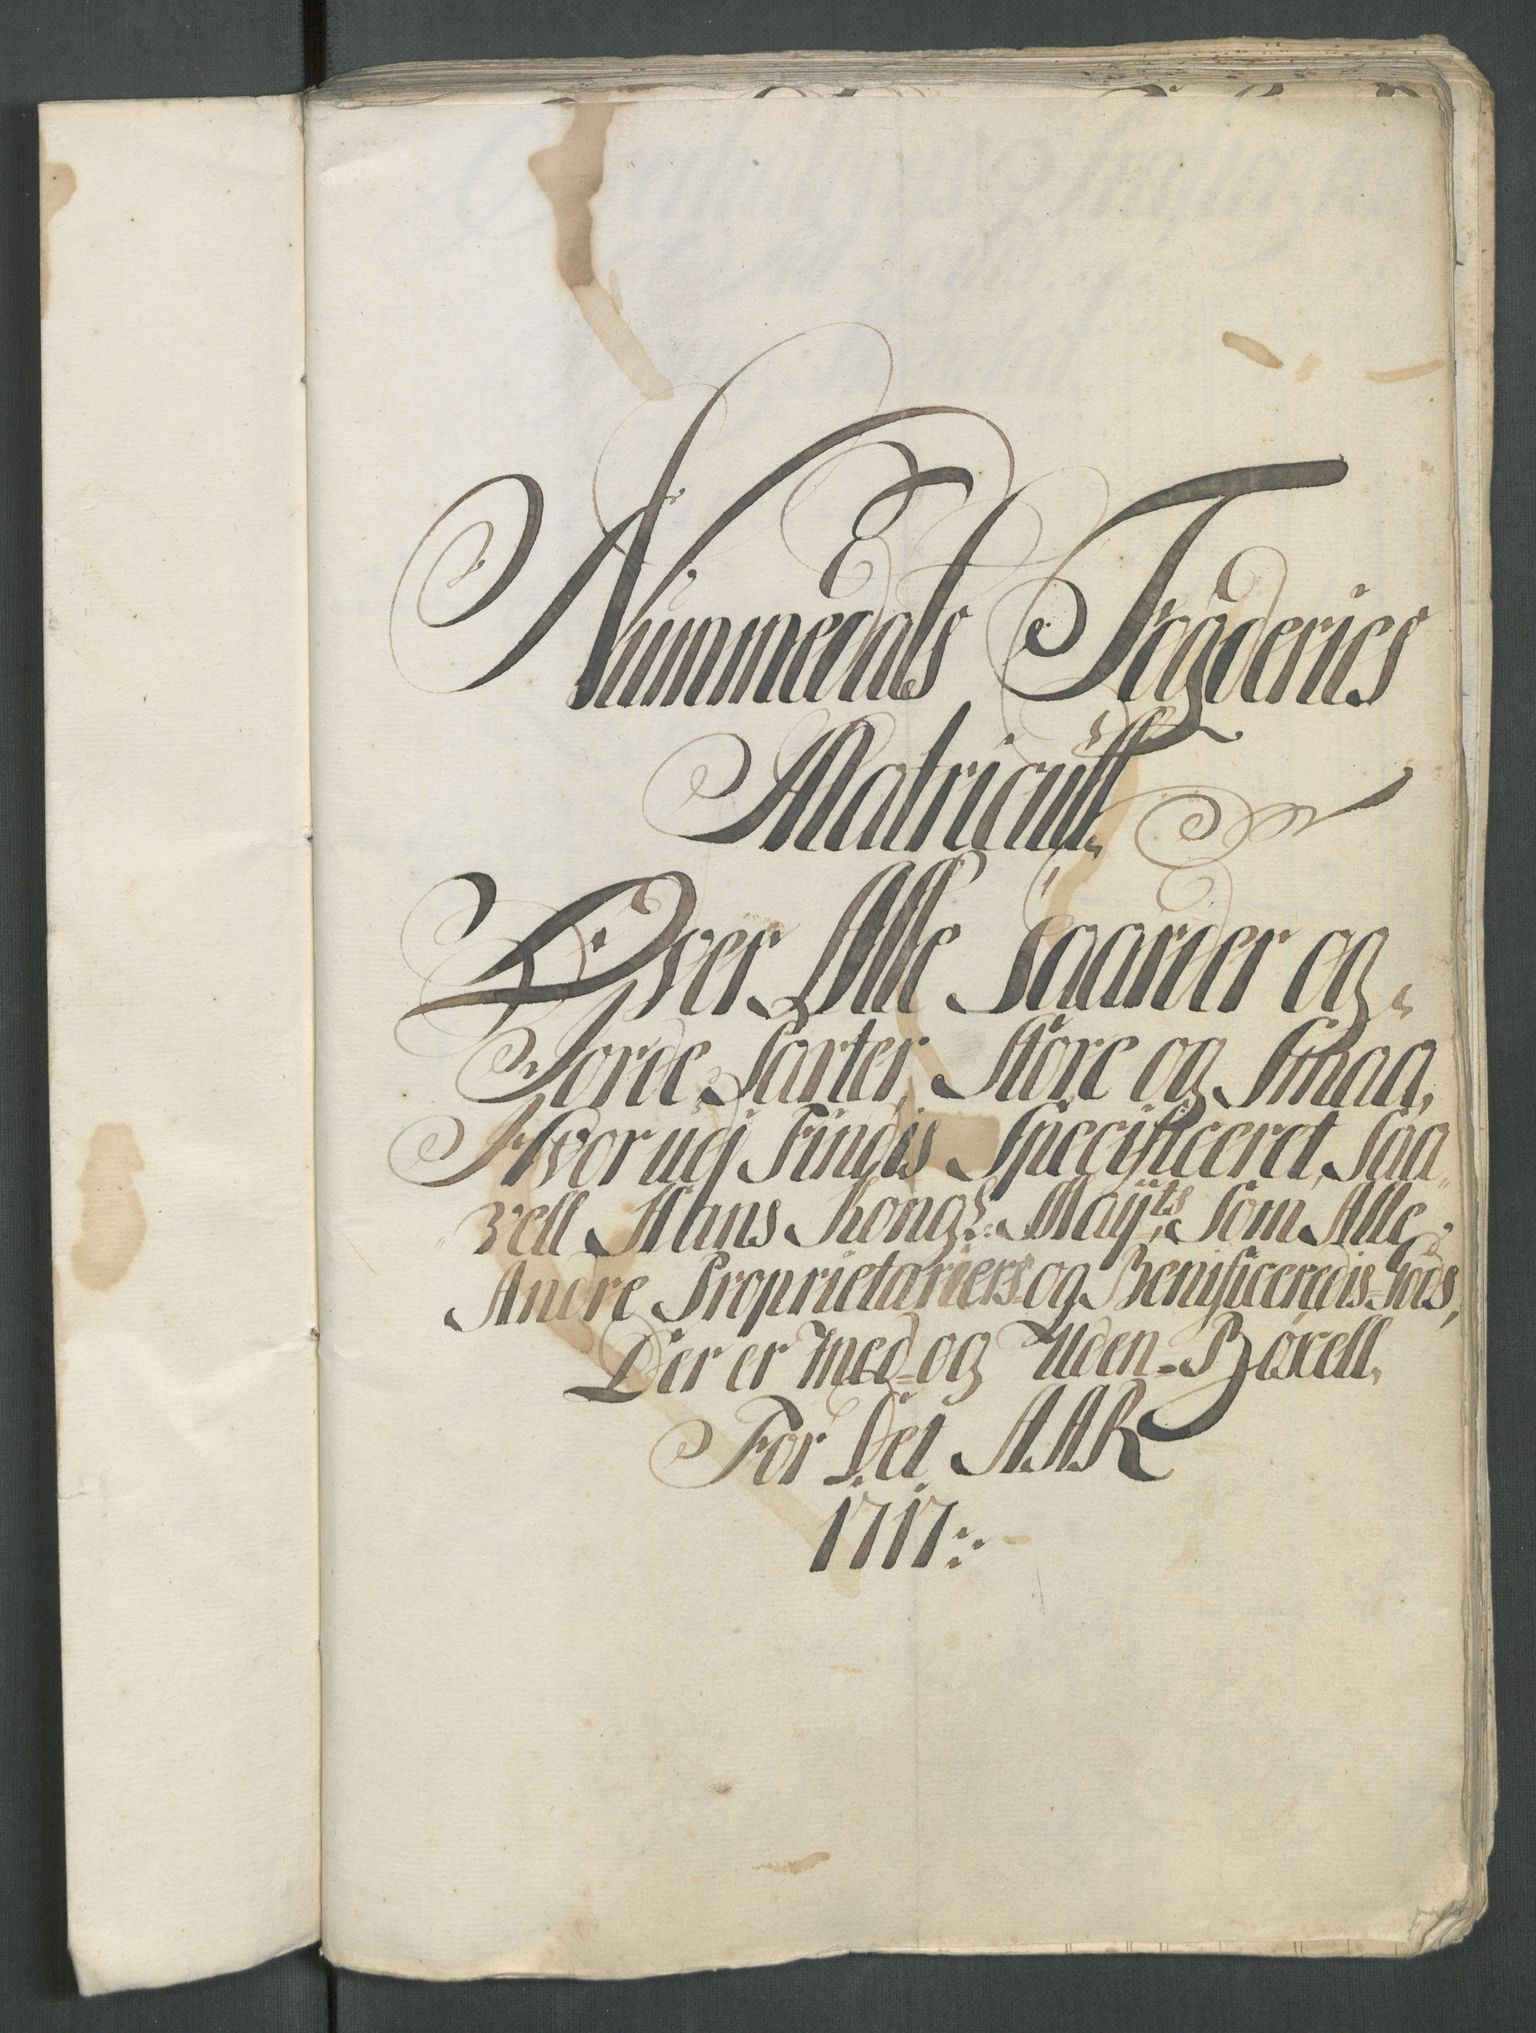 Nummedals Fogderies
Matricull
Over Alle Gaarder og
Jorde Parter, Store og Smaa,
Hvorudj Findis Specificeret, Saa
vell Hans Kongl: Mayts, Som Alle
Andre Proprietariers og Benificeredis Gods,
Der er med og Uden Böxell,
For Det AAR
1717: